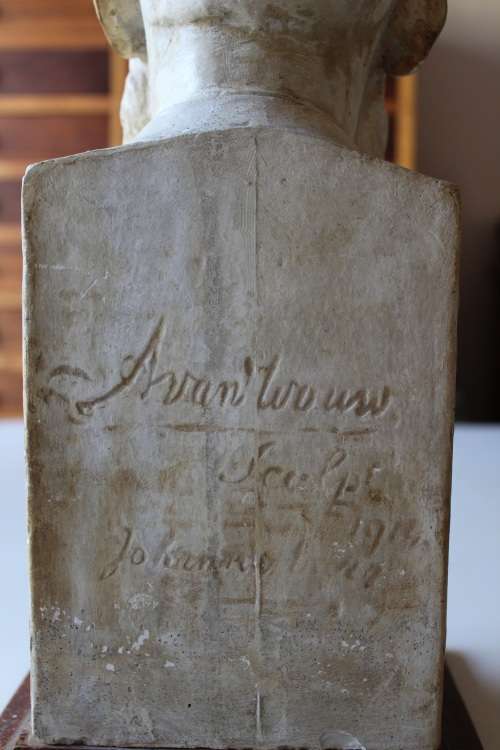 A van Wouw
Sculpt
191
Johannesburg